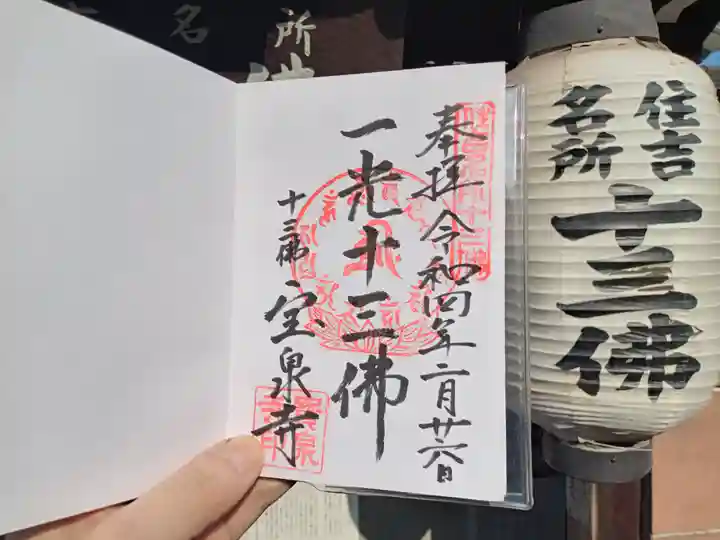 奉拝 令和四年二月廿六日
一光十三佛
十三佛 宝泉寺
住吉
名所
十三佛
名
所